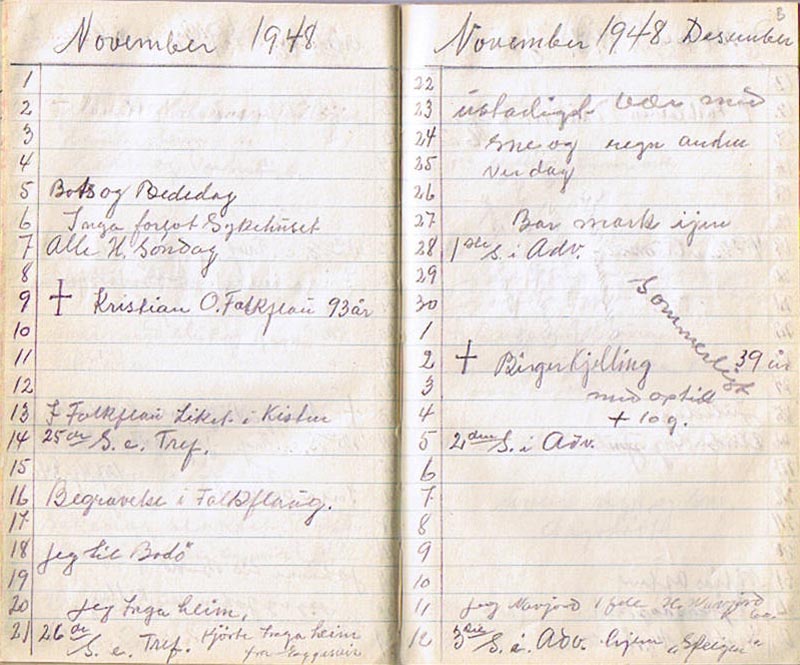 November 1948
1
2
3
4
5 Bots og Bededag
6 Inga forsot Sykehuset
7 Alle H. Søndag
8
9 † Kristian O. Falkflaü 93 år
10
11
12
13 I Falkflaü Liket i Kisten
14 25de S. e. Tref.
15
16 Begravelse i Falkflaüg.
17
18 Jeg til Bodö
19
20 Jeg Inga heim.
21 26de S. e. Tref. Kjörte Inga heim
fra
November 1948 Desember
22
23 ustadigt vær med
24 sne og regn anden
25 ver dag
26
27 Bar mark ijen
28 1ste S. i Adv.
29
30 Sommerligt
1
2 † Birger Kjelling 39 år
3 med optill
4 + 10 g.
5 2den S. i Adv.
6
7
8
9
10
11 Jeg Navjord H. Navjord
12 3die S. i. Adv.